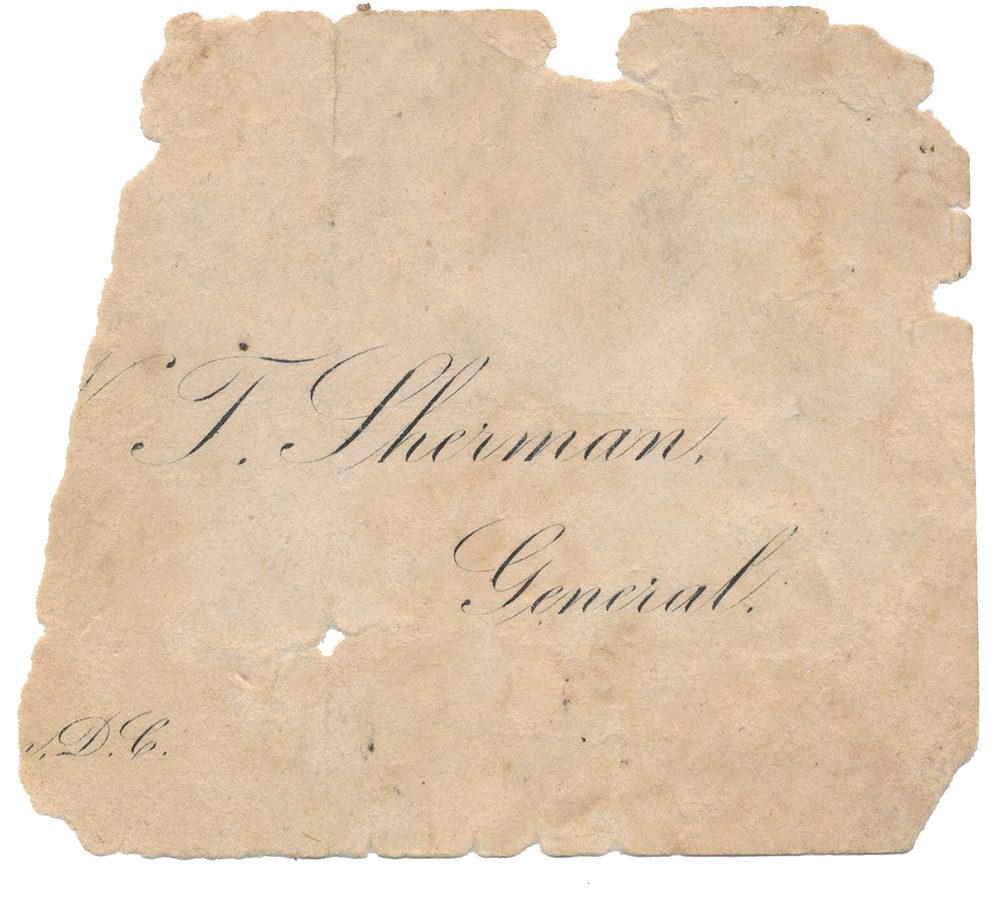 T. Sherman,
General.
D.C.